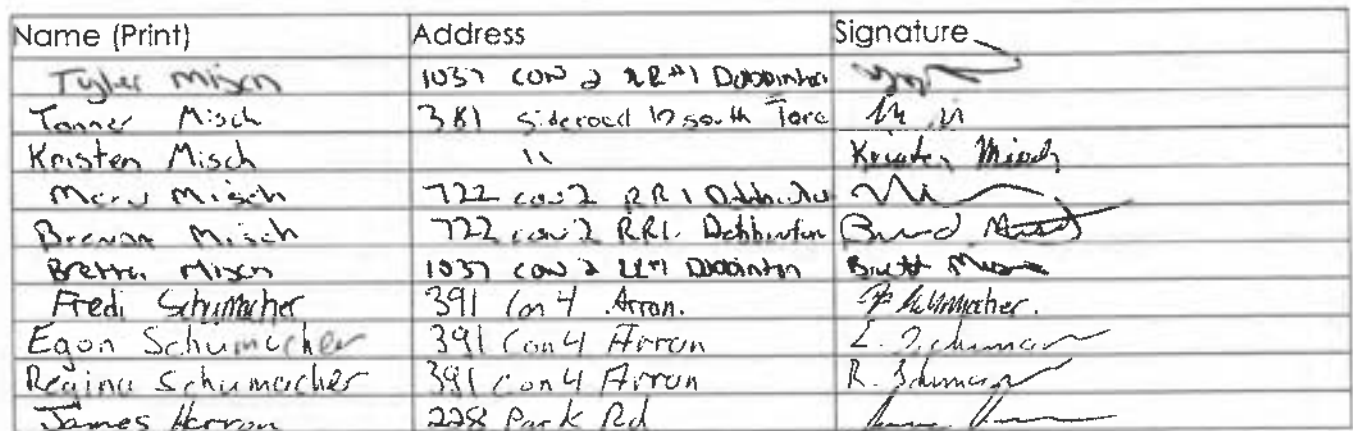 Name (Print) Address Signature
Tyler Misch 1037 CON 2 RR#1 Dobbinton
Tanner Misch 381 Sideroad 10 south Tara
Kristen Misch " Kristen Misch
Misch 722 con 2 RR1 Dobbinton
Misch 722 con 2 RR1. Dobbinton
Misch 1037 CON 2 RR#1 Dobbinton Brett
Fredi Schumacher 391 Con 4 Arran. Schumacher.
Egon Schumacher 391 Con 4 Arran E. Schumacher
Regina Schumacher 391 Con 4 Arran R. Schumacher
James Herron 228 Park Rd